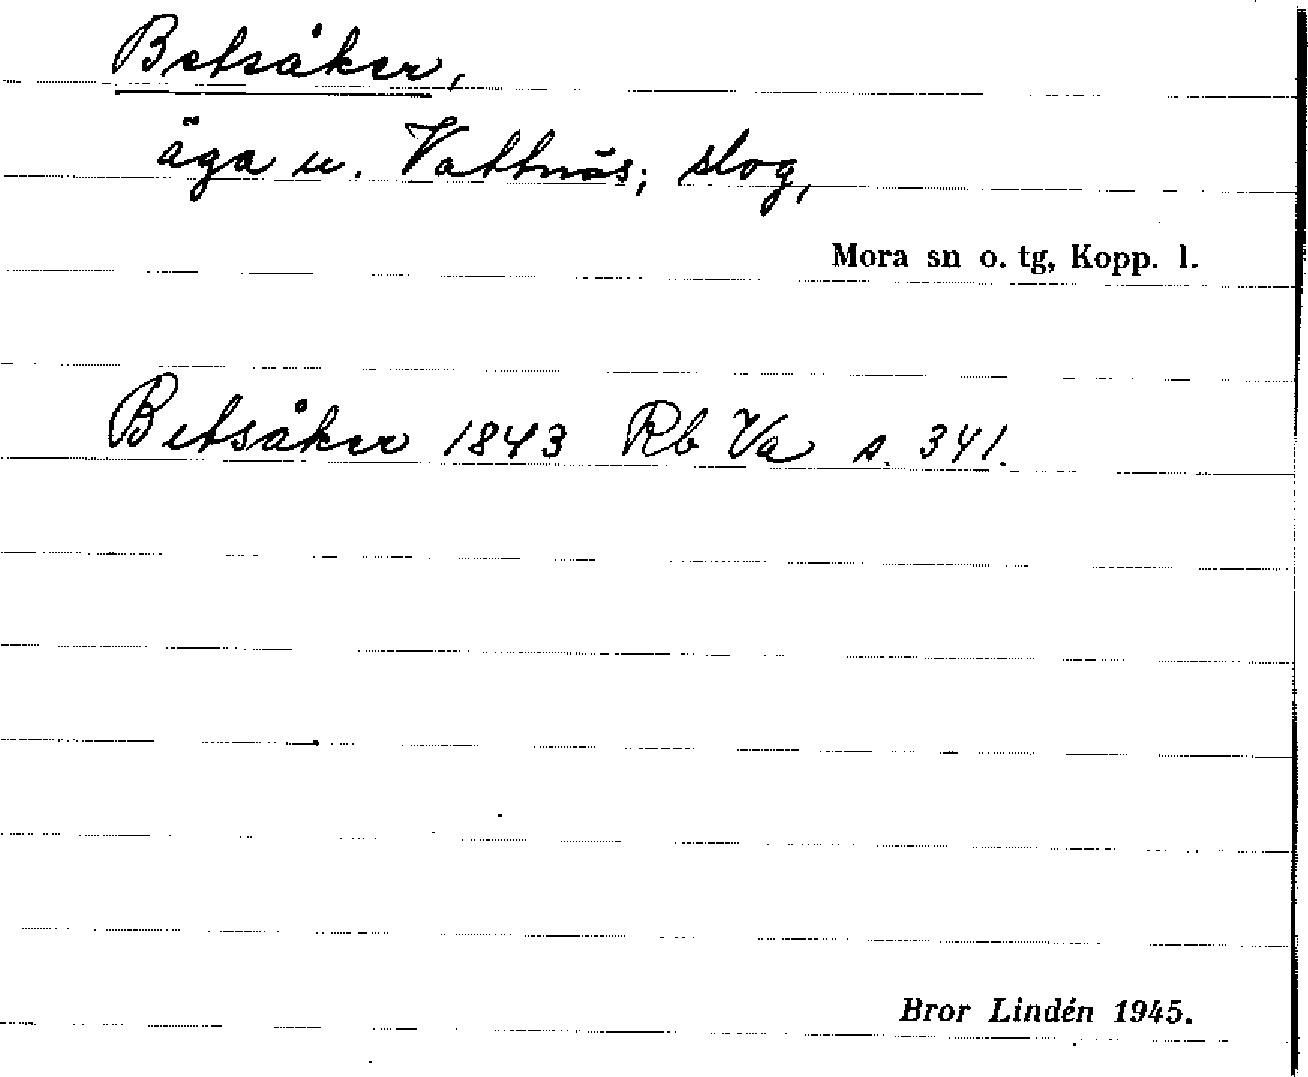 Betsåker,
äga u. Vattnäs; slog,
Mora sn o. tg, Kopp. l.
Betsåker 1843 Rb Va s. 341.
Bror Lindén 1945.